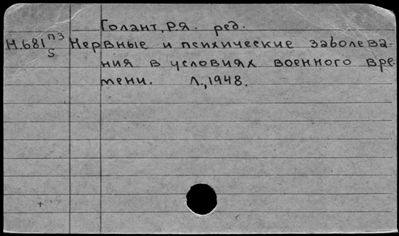 Голант, Р.Я. ред.
Н.681 п3 Нервные и психические заболева-
5 ния в условиях военного вре-
мени. Л., 1948.